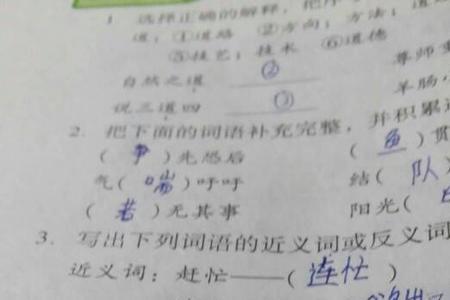 1. 选择正确的解释,把序
道:①道路 ②方向;方法;道
⑤技艺;技术 ⑥道德
自然之道 ② 尊师
说三道四 ③ 羊肠
2. 把下面的词语补充完整,并积累
(争)先恐后 (鱼)贯
气(喘)吁吁 结(队)
(若)无其事 阳光(
3. 写出下列词语的近义词或反义词
近义词:赶忙——(连忙)